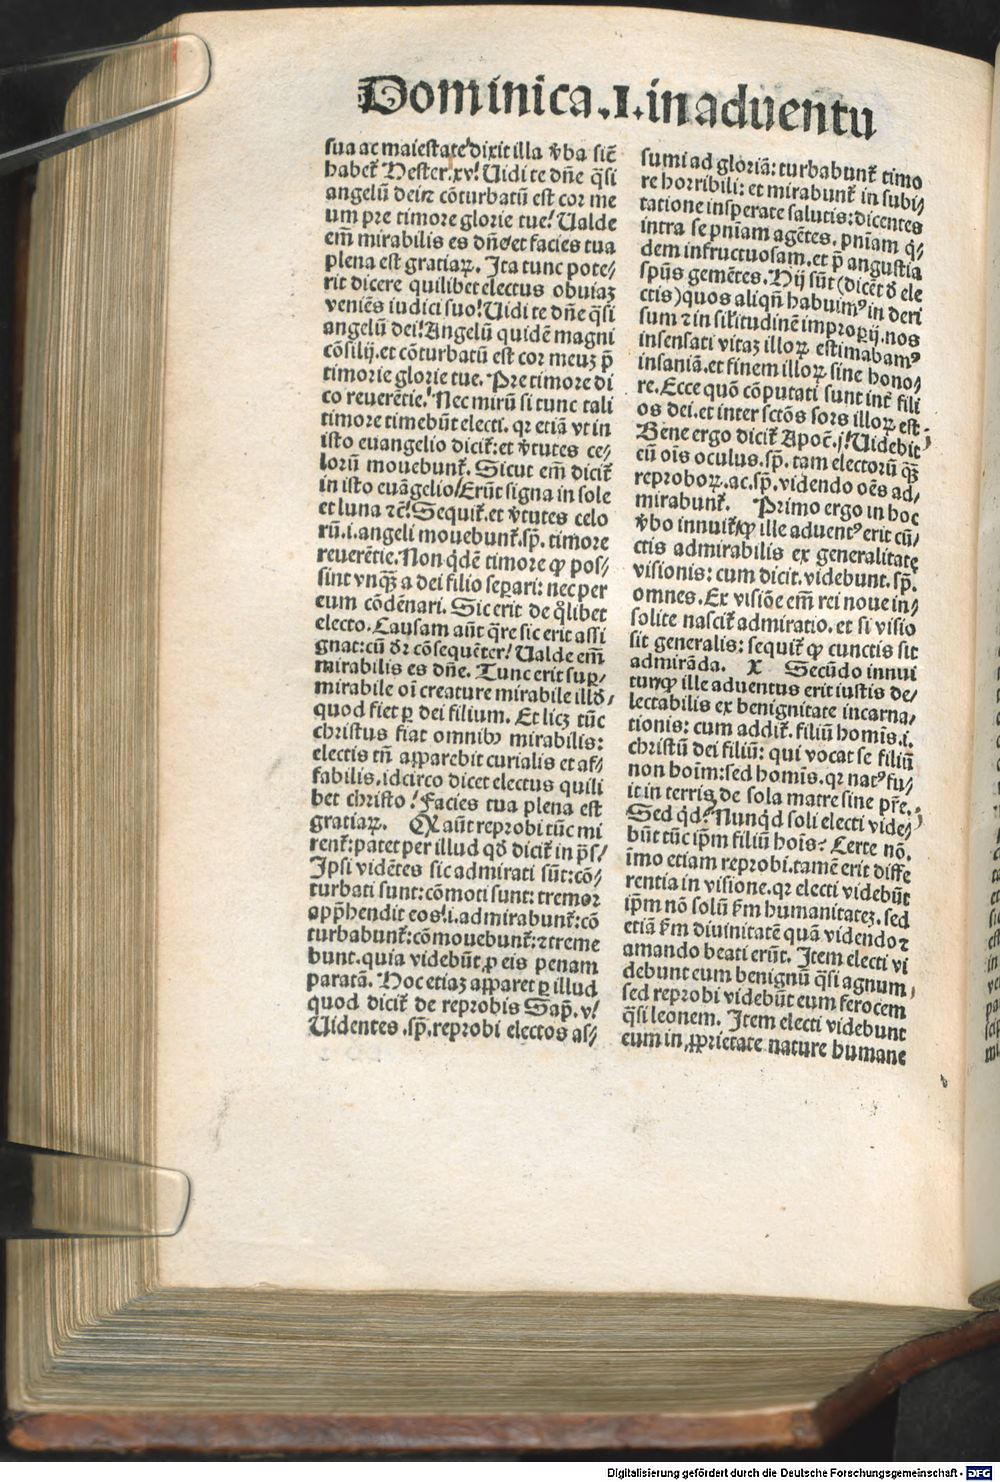 Dominica .I. in aduentu
sua ac maiestate dixit illa v̄ba sic̄
habet᷑ Hester.xv! Uidi te dn̄e q̄si
angelū dei ⁊ cōturbatū est cor me
um pre timore glorie tue! Ualde
em̄ mirabilis es dn̄e et facies tua
plena est gratiaꝝ. Ita tunc pote/
rit dicere quilibet electus obuiaꝫ
veniēs iudici suo! Uidi te dn̄e q̄si
angelū dei! Angelū quidē magni
cōsilij.et cōturbatū est cor meuꝫ p̄
timorie glorie tue. Pre timore di
co reuerētie! Nec mirū si tunc tali
timore timebūt electi. qꝛ etiā vt in
isto euangelio dicit᷑:et v̄tutes ce/
lorū mouebunt᷑. Sicut em̄ dicit᷑
in isto euāgelio! Erūt signa in sole
et luna ⁊c̄! Sequit᷑.et v̄tutes celo
rū.i.angeli mouebunt᷑.sp̄. timore
reuerētie. Non q̇dē timore ꝙ pos/
sint vnqȝ̄ a dei filio seꝑari: nec per
eum cōdēnari. Sic erit de q̇libet
electo. Causam aūt q̄re sic erit assi
gnat:cū dꝛ cōsequēter! Ualde em̄
mirabilis es dn̄e. Tunc erit suꝑ/
mirabile oī creature mirabile illď/
quod fiet ꝑ dei filium. Et licꝫ tūc
christus fiat omnibꝰ mirabilis:
electis tn̄ apparebit curialis et af/
fabilis.idcirco dicet electus quili
bet christo! Facies tua plena est
gratiaꝝ. Q aūt reprobi tūc mi
rent᷑:patet per illud qď dicit᷑ in p̄s!
Ipsi vidētes sic admirati sūt:cō/
turbati sunt:cōmoti sunt: tremor
app̄hendit eos!.i.admirabunt᷑:cō
turbabunt᷑:cōmouebunt᷑:⁊ treme
bunt.quia videbūt ꝓ eis penam
paratā. Hoc etiaꝫ apparet ꝑ illud
quod dicit᷑ de reprobis Sap̄. v!
Uidentes .sp̄.reprobi electos as/
sumi ad gloriā: turbabunt᷑ timo
re horribili: et mirabunt᷑ in subi/
tatione insperate salutis:dicentes
intra se pn̄iam agētes. pn̄iam q̇/
dem infructuosam.et p̄ angustia
sp̄us gemētes. Hij sūt (dicēt ď ele
ctis) quos aliqn̄ habuimꝰ in deri
sum ⁊ in sil̓itudinē improꝑij.nos
insensati vitaꝫ illoꝝ estimabamꝰ
insaniā.et finem illoꝝ sine hono/
re. Ecce quō cōputati sunt int̓ fili
os dei.et inter sctōs sors illoꝝ est.
Bene ergo dicit᷑ Apoc̄.j! Uidebit
eū oīs oculus.sp̄. tam electorū qȝ̄
reproboꝝ.ac.sp̄.videndo oēs ad/
mirabunt᷑. Primo ergo in hoc
v̄bo innuit᷑ ꝙ ille aduentꝰ erit cū/
ctis admirabilis ex generalitate
visionis: cum dicit.videbunt.sp̄.
omnes. Ex visiōe em̄ rei noue in/
solite nascit᷑ admiratio.et si visio
sit generalis: sequit᷑ ꝙ cunctis sit
admirāda. X Secūdo innui
tur ꝙ ille aduentus erit iustis de/
lectabilis ex benignitate incarna/
tionis: cum addit᷑. filiū homīs.i.
christū dei filiū: qui vocat se filiū
non hoīm:sed homīs.qꝛ natꝰ fu/
it in terris de sola matre sine pr̄e.
Sed q̇d? Nunq̇d soli electi vide/
būt tūc ip̄m filiū hoīs? Certe nō.
īmo etiam reprobi.tamē erit diffe
rentia in visione.qꝛ electi videbūt
ip̄m nō solū ẜm humanitateꝫ.sed
etiā ẜm diuinitatē quā videndo ⁊
amando beati erūt. Item electi vi
debunt eum benignū q̄si agnum/
sed reprobi videbūt eum ferocem
q̄si leonem. Item electi videbunt
eum in ꝓprietate nature humane
Digitalisierung gefördert durch die Deutsche Forschungsgemeinschaft - DFG